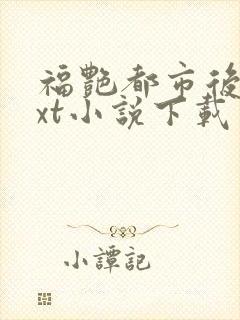 福艷都市後
xt小說下載
小譚記